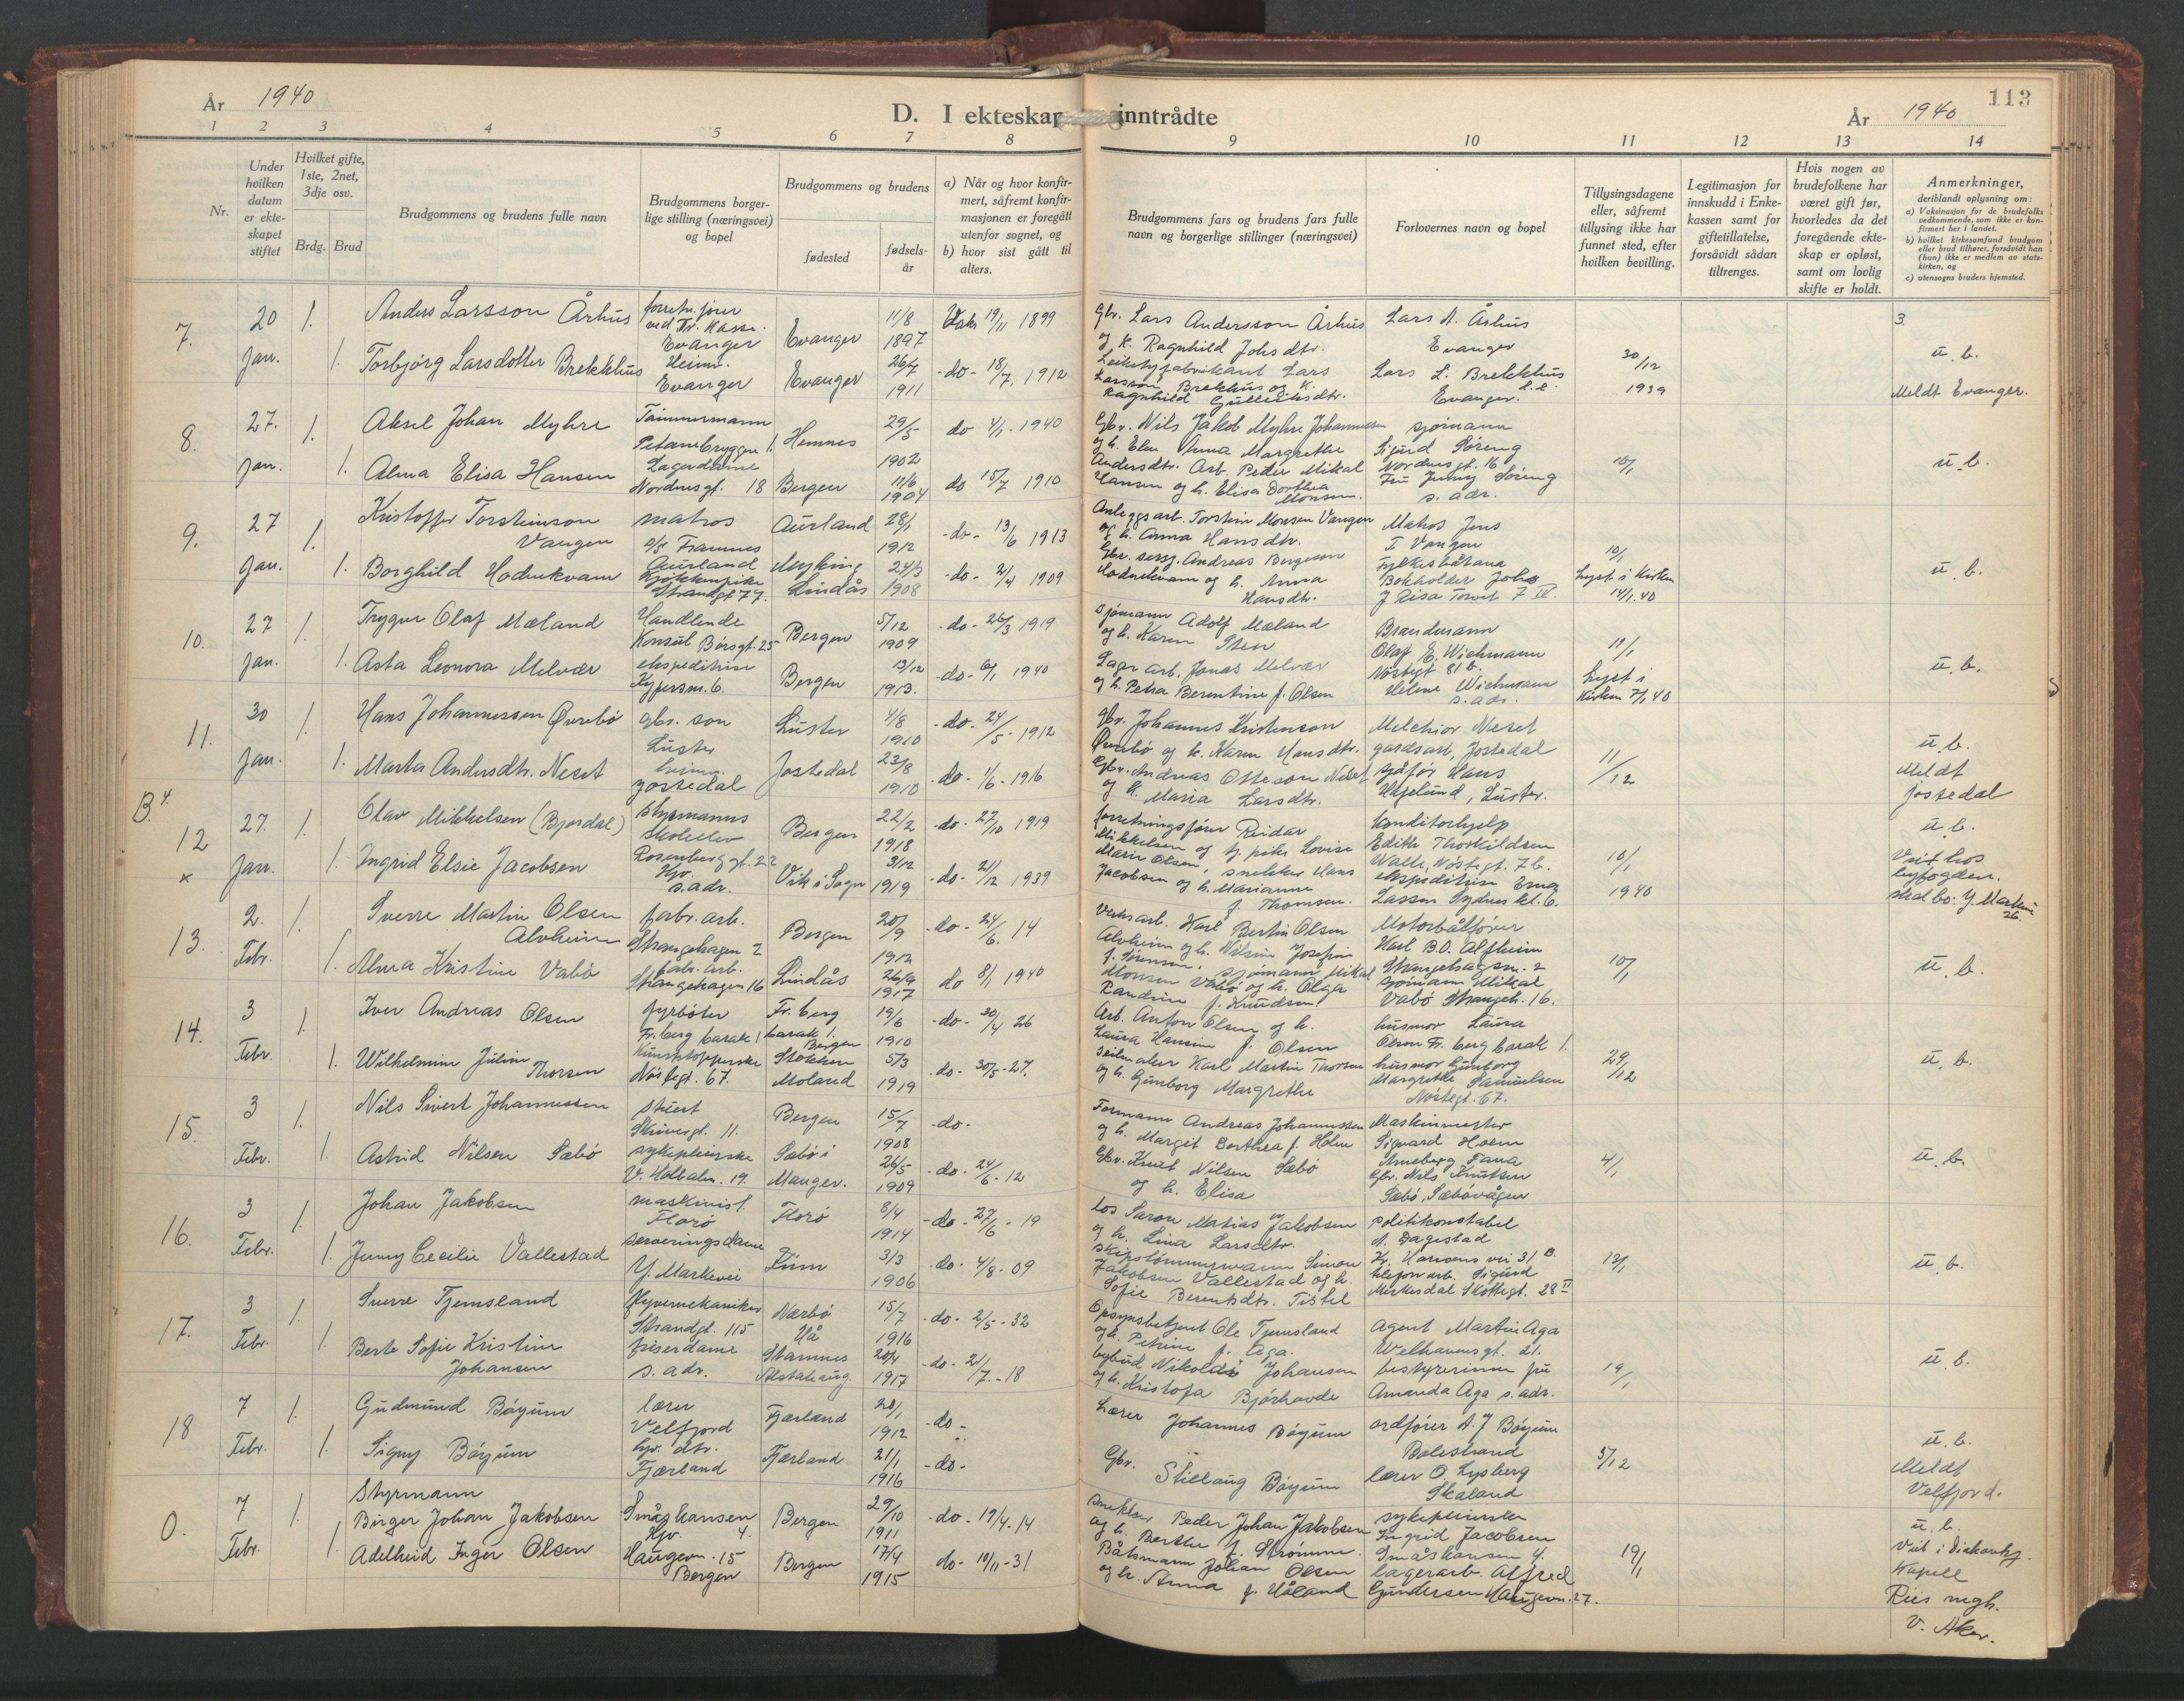 År 1940
D. I ekteskap inntrådte
År 1940
113
1 2 3 4 5 6 7 8 9 10 11 12 13 14
Nr.
Under hvilken datum er ekteskapet stiftet
Hvilket gifte, 1ste, 2net, 3dje osv.
Brdg. Brud
Brudgommens og brudens fulle navn
Brudgommens borgerlige stilling (næringsvei) og bopel
Brudgommens og brudens
fødested
fødselsår
a) Når og hvor konfirmert, såfremt konfirmasjonen er foregått utenfor sognet, og
b) hvor sist gått til alters.
Brudgommens fars og brudens fars fulle navn og borgerlige stillinger (næringsvei)
Forlovernes navn og bopel
Tillysingsdagene eller, såfremt tillysing ikke har funnet sted, efter hvilken bevilling.
Legitimasjon for innskudd i Enkekassen samt for giftetillatelse, forsåvidt sådan tiltrenges.
Hvis nogen av brudefolkene har været gift før, hvorledes da det foregående ekteskap er opløst, samt om lovlig skifte er holdt.
Anmerkninger,
deriblandt oplysning om:
a) Vaksinasjon for de brudefolks vedkommende, som ikke er konfirmert her i landet.
b) hvilket kirkesamfund brudgom eller brud tilhører, forsåvidt han (hun) ikke er medlem av statskirken, og
c) utensogns bruders hjemsted.
7. 20 Jan. 1.
Anders Larsson Århus
Evanger
Evanger
11/8 1897
19/11 1899
Gbr. Lars Andersson Århus
og k. Ragnhild Johsdtr.
Lars A. Århus
Evanger
1. Torbjørg Larsdotter Brekkhus
Heimv.
Evanger
Evanger
26/7 1911
-do- 18/7 1912
Leiketyfabrikant Lars
Larsson Brekkhus og k.
Ragnhild Gulleiksdtr.
Lars L. Brekkhus
Evanger.
30/12 1939
u. b.
Meldt Evanger.
8. 27. jan. 1.
Aksel Johan Myhre
Tømmermann
Hemnes
29/5 1902
do 4/1 - 1940
Gbr. Nils Jakob Myhre Johannessen
og h. Elen Anna Margrethe
Andersdtr.
sjømann
Sigurd Søreng
Nordnesgt. 16
1. Alma Elisa Hansen
Lagerdame
Nordnesgt. 18
Bergen
11/6 1904
do 15/7 1910
Arb. Peder Mikal
Hansen og h. Elisa Dorthea
Monsen.
Fru Jenny Søreng
s. adr.
10/1
u. b.
9. 27 Jan. 1.
Kristoffer Torsteinson
Vangen
matros
D/S Framnes
Aurland
Aurland
28/1 1912
-do- 13/6 1913
Anleggsarb. Torstein Monsen Vangen
og h. Anna Hansdtr.
Matros Jens
I Vangen
Fylkesbåtana
1. Borghild Hodnekvam
Kjøkkenpike
Strandgt 77.
Myking
Lindås
24/3 1908
-do- 2/4 1909
Gbr. Andreas Bergeson
Hodnekvam og h. Anna
Hansdtr.
Bokholder Johs
J Risa Torvet 7 IV.
10/1
Lyst i Kirken
14/1.40
u. b.
10. 27 jan. 1.
Trygve Olaf Mæland
Handlende
Konsul Børsgt. 25
Bergen
5/12 1909
-do- 26/3 1919
Sjømann Adolf Mæland
og h. Karen Sten
Brandmann
Olaf E. Wichmann
Nøstegt 81 b.
1. Asta Leonora Melvær
ekspeditrise
Kypersm. 6.
Bergen
13/12 1913.
-do- 6/1 1940
Lager arb. Jonas Melvær
og h. Petra Berentine f. Olsen
Helene Wichmann
s. adr.
11/1
Lyst i
Kirken 7/1 40
u. b.
11. 30 jan. 1.
Hans Johannessen Øvrebø
gbr. son
Luster
Luster
4/8 1910
-do- 24/5 - 1912
Gbr. Johannes Kristenson
Øvrebø og k. Karen Hansdtr.
Melchior Neset
gardsarb, Jostedal
1. Marta Andersdtr. Neset
heimv.
Jostedal
Jostedal
23/8 1910
-do- 1/6 - 1916
Gbr. Andreas Otteson Neset
og k. Maria Larsdtr.
sjåfør Hans
Høgelund, Luster.
11/12
u. b.
Meldt
Jostedal
B 4.
12 x 27. Jan. 1.
Olav Mikkelsen (Bjordal)
styrmanns
skoleelev
Rosenberg gt. 22
Bergen
22/2 1918
-do- 27/10 1919
Forretningsfører Reidar
Mikkelsen og pike Lovise
Marie Olsen,
Konditorhjelp
Edith Thorkildsen
Walle, Nøstegt. 76.
1. Ingrid Elsie Jacobsen
Hjv.
s. adr.
Vik i Sogn
3/12 1919
-do- 21/12 1939
snekker Hans
Jacobsen og h. Marianne
f. Thomsen.
ekspeditrise Erna
Lassen Sydneskl. 6.
10/1 1940
u. b.
Viet hos
byfogden.
skal bo: Y. Markevei
26.
13. 2. Febr. 1.
Sverre Martin Olsen
Alvheim
fabr. arb.
Strangehagen 2
Bergen
20/9 1912
-do- 24/6. 14
Verksarb. Karl Bertin Olsen
Alvheim og h. Nilsine Josefine
f. Sørensen,
Motorbåtfører
Karl B.O. Alfheim
Strangehagen. 2
1. Alma Kristine Vabø
fabr. arb.
Strangehagen 16
Lindås
26/9 1917
do 8/1 1940
sjømann Mikal
Monsen Vabø og h. Olga
Randine f. Knudsen
sjømann Mikal
Vabø Strangeh. 16.
10/1
u. b.
14. 3 Febr. 1.
Iver Andreas Olsen
fyrbøter
Fr. berg barak 1
Fr. berg
barak 1.
Bergen
19/6 1910
-do- 30/4 26
Arb. Anton Olsen og h.
Laura Hansine f. Olsen
husmor Laura
Olsen Fr. berg barak 1.
1. Wilhelmine Juline
Thorsen
Kunststopperske
Nøstegt. 67.
Stokken
Moland
5/3 1919
-do- 30/5 - 27.
Seilmaker Karl Martin Thorsen
og h. Gunborg Margrethe
husmor Gunborg
Margrethe Samuelsen
Nøstegt. 67.
29/12
u. b.
15. 3 Febr. 1.
Nils Sivert Johannessen
stuert
Skivergt. 11.
Bergen
15/7 1908
-do-
Formann Andreas Johannessen
og h. Margit Berthea f. Holm
Maskinmester
Sigvard Holm
Arneberg Fana
1. Astrid Nilsen Sæbø
sykepleierske
V. Holbalm. 19.
Sæbø i
Manger.
26/5 1909
-do- 24/6 - 12
Gbr. Knut Nilsen Sæbø
og h. Elisa
Gbr. Nils Knutsen
Sæbø, Sæbøvågen
4/1
u. b.
16. 3 Febr. 1.
Johan Jakobsen
maskinist.
Florø
Florø
8/4 1914
-do- 27/6 - 19
Los Saron Matias Jakobsen
og h. Lina Larsdtr.
politikonstabel
A. Dagestad
Hansens vei 31 B.
1. Jenny Cecilie Vallestad
serveringsdame
Y. Markevei
Kinn
3/3 1906
-do- 4/8 - 09
Skipstømmermann Simon
Jakobsen Vallestad og h.
Sofie Berentsdtr. Tistel
telefon arb. Sigurd
Mirkesdal Skottegt. 28 II
13/1
u. b.
17. 3 Febr. 1.
Sverre Tjemsland
flyvemekaniker
Strandgt. 115
Nærbø
Hå
15/7 1916
-do- 2/5 - 32
Opsynsbetjent Ole Tjemsland
og h. Petrine f. Aga.
Agent Martin Aga
Welhavensgt. 21.
1. Berte Sofie Kristine
Johansen
friserdame
s. adr.
Stamnes
Alstahaug
20/4 1917
-do- 2/7 - 18
bybud Nikolai Johansen
og h. Kristofa Bjørhovde
bestyrerinne fru
Amanda Aga s. adr.
19/1
u. b.
18 7 Febr. 1.
Gudmund Bøyum
lærer
Velfjord
Fjærland
20/1 1912
-do-
Lærer Johannes Bøyum
ordfører A. J Bøyum
Balestrand
1. Signy Bøyum
dtr.
Fjærland
Fjærland
21/1 1916
-do-
Gbr.
Stillaug Bøyum
lærer O. Lysberg
Skaland
5/12
u. b.
Meldt
Velfjord.
0. 7 Febr. 1.
Styrmann
Birger Johan Jakobsen
Småskansen
4.
Bergen
29/10 1911
-do- 19/4 - 14
Snekker Peder Johan Jakobsen
og h. Berthe f. Strømme.
sykepleierske
Ingrid Jacobsen
Småskansen 4.
1. Adelheid Inger Olsen
Hjv.
Haugevn. 15
Bergen
Bergen
17/4 1915
do- 10/11 - 31
Båtsmann Johan Olsen
og h. Anna f. Håland
lagerarb. Alfred
Gundersen Haugevn. 27.
19/1
u. b.
Viet i Diakonhj.
Kapell
Riis mgh.
V. Aker.